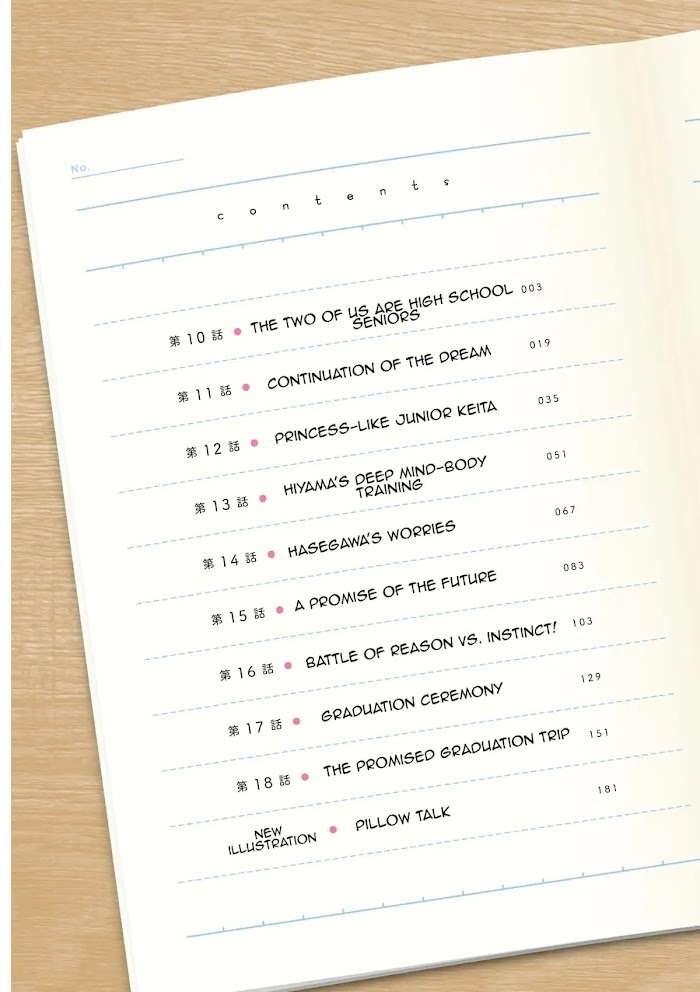 No.
contents
第10話 • THE TWO OF US ARE HIGH SCHOOL 003
SENIORS
第11話 • CONTINUATION OF THE DREAM 019
第12話 • PRINCESS-LIKE JUNIOR KEITA 035
第13話 • HIYAMA'S DEEP MIND-BODY 051
TRAINING
第14話 • HASEGAWA'S WORRIES 067
第15話 • A PROMISE OF THE FUTURE 083
第16話 • BATTLE OF REASON VS. INSTINCT! 103
第17話 • GRADUATION CEREMONY 129
第18話 • THE PROMISED GRADUATION TRIP 151
NEW
ILLUSTRATION • PILLOW TALK 181